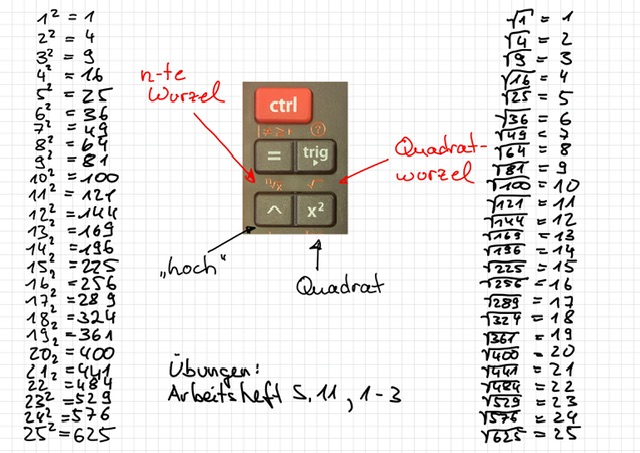 1² = 1
2² = 4
3² = 9
4² = 16
5² = 25
6² = 36
7² = 49
8² = 64
9² = 81
10² = 100
11² = 121
12² = 144
13² = 169
14² = 196
15² = 225
16² = 256
17² = 289
18² = 324
19² = 361
20² = 400
21² = 441
22² = 484
23² = 529
24² = 576
25² = 625
n-te
Wurzel
ctrl
= trig
ⁿ√x √
^ x²
Quadrat-
wurzel
„hoch“
Quadrat
Übungen:
Arbeitsheft S. 11, 1-3
√1 = 1
√4 = 2
√9 = 3
√16 = 4
√25 = 5
√36 = 6
√49 = 7
√64 = 8
√81 = 9
√100 = 10
√121 = 11
√144 = 12
√169 = 13
√196 = 14
√225 = 15
√256 = 16
√289 = 17
√324 = 18
√361 = 19
√400 = 20
√441 = 21
√484 = 22
√529 = 23
√576 = 24
√625 = 25